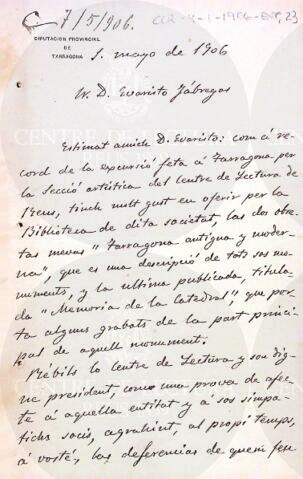 C 7/5/906.
CCR
23
DIPUTACIÓN PROVINCIAL
DE
TARRAGONA
1. mayo de 1906
D. Evaristo Fábregas
Estimat amich D. Evaristo: com á re-
cord de la excursió feta á Tarragona per
la Secció artística del Centre de Lectura de
Reus, tinch molt gust en oferir per la
Biblioteca de dita societat, las dos obre-
tas mevas "Tarragona antigua y moder-
na", que es una descripció de tots sos mo-
numents, y la última publicada, titula-
da "Memoria de la Catedral," que por-
ta alguns grabats de la part princi-
pal de aquell monument.
Rébils lo Centre de Lectura y son dig-
ne president, como una prova de afec-
te á aquella entitat y á sos simpá-
tichs socis, agrahint, al propi temps,
á vosté, las deferencias de quem feu
CENTRE DE LECTURA